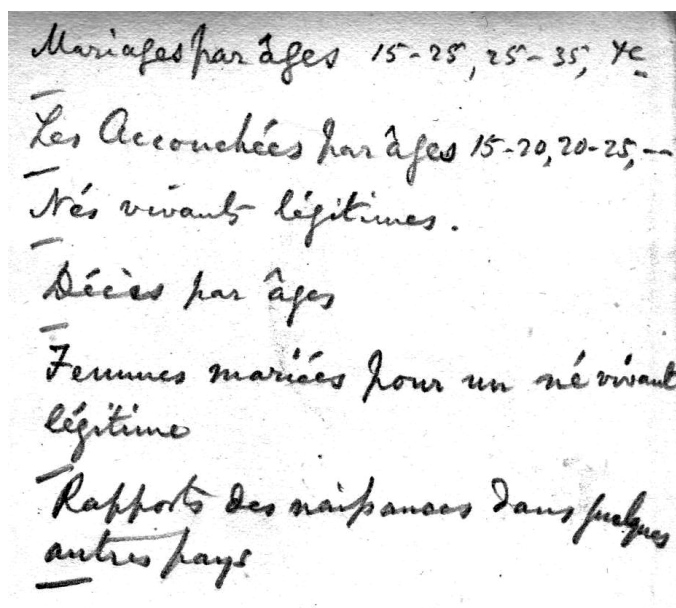 Mariages par âges 15-25, 25-35, &c
Les Accouchées par âges 15-20, 20-25, --
Nés vivants légitimes.
Décès par âges
Femmes mariées pour un né vivant
légitime
Rapports des naissances dans quelques
autres pays